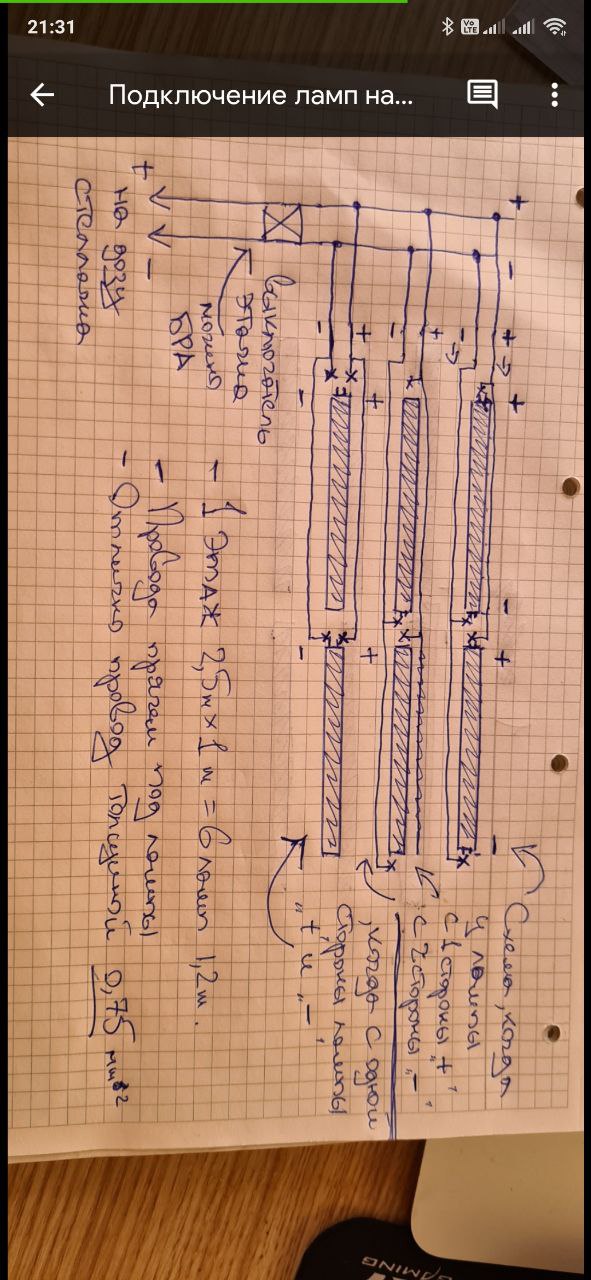 21:31
Vo
LTE
Подключение ламп на...
+
-
+
-
на розж
стеллажа
выключатель
этажа
можно
БРА
+
-
+
-
+
-
+
+
-
-
+
-
+
-
+
-
Схема, когда
у лампы
с 1 стороны "+"
с 2 стороны "-"
, когда с одной
стороны лампы
"+ и -"
- 1 этаж 2,5м x 1м = 6 ламп 1,2м.
- Провода прячем под лампы
- Отлично провод толщиной 0,75 мм²
GAMING